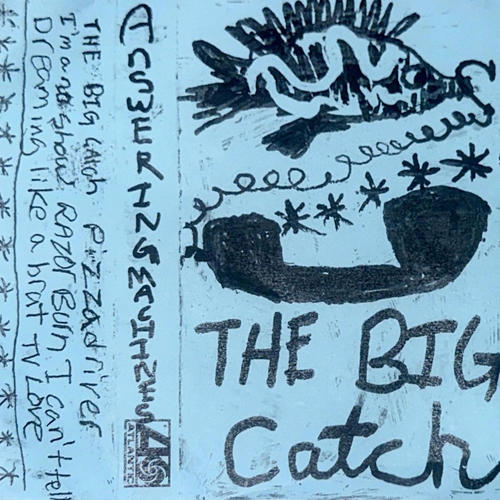 THE BIG Catch Pizzadriver
I'm a show RAZOR Burn I can't tell
Dreaming like a brat TV Love
ANSWERING MACHINES
ATLANTIC
THE BIG
Catch